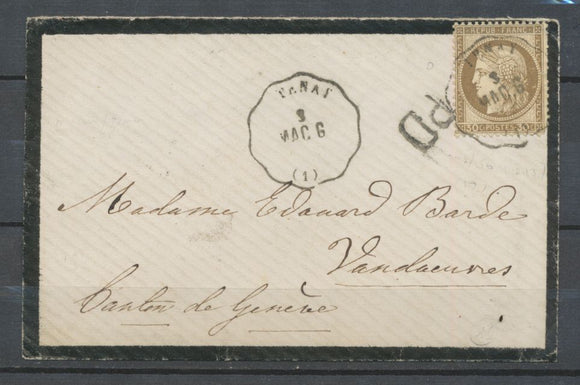 REPUB · FRANC
30 C · POSTES · 30 C
PD
TENAY
MAC. G
(1)
Madame Edouard Barde
Vandoeuvres
Canton de Genève